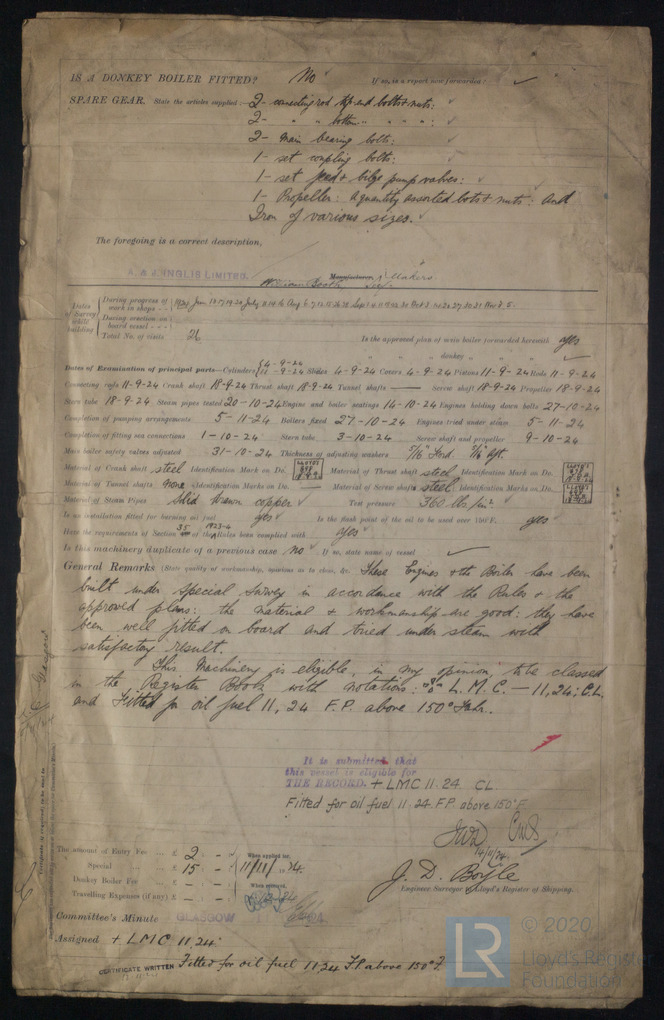 IS A DONKEY BOILER FITTED? No If so, is a report now forwarded? ✓
SPARE GEAR. State the articles supplied:- 2- connecting rod top end bolts & nuts: ✓
2- " " bottom " " " : ✓
2- main bearing bolts: ✓
1- set coupling bolts: ✓
1- set feed & bilge pump valves: ✓
1- Propeller: a quantity assorted bolts & nuts: and
Iron of various sizes. ✓
The foregoing is a correct description,
A. & J. INGLIS LIMITED.
William Booth Manufacturer. Makers
Dates of Survey while building
During progress of work in shops - -
During erection on board vessel - - -
Total No. of visits 26
Is the approved plan of main boiler forwarded herewith yes
" " " donkey " " ✓
Dates of Examination of principal parts—Cylinders 4-9-24 Slides 4-9-24 Covers 4-9-24 Pistons 11-9-24 Rods 11-9-24
Connecting rods 11-9-24 Crank shaft 18-9-24 Thrust shaft 18-9-24 Tunnel shafts — Screw shaft 18-9-24 Propeller 18-9-24
Stern tube 18-9-24 Steam pipes tested 20-10-24 Engine and boiler seatings 14-10-24 Engines holding down bolts 27-10-24
Completion of pumping arrangements 5-11-24 Boilers fixed 27-10-24 Engines tried under steam 5-11-24
Completion of fitting sea connections 1-10-24 Stern tube 3-10-24 Screw shaft and propeller 9-10-24
Main boiler safety valves adjusted 31-10-24 Thickness of adjusting washers
Material of Crank shaft steel Identification Mark on Do. Material of Thrust shaft steel Identification Mark on Do.
Material of Tunnel shafts none Identification Marks on Do. Material of Screw shafts steel Identification Marks on Do.
Material of Steam Pipes Solid drawn copper ✓ Test pressure 360 lbs / in²
Is an installation fitted for burning oil fuel yes ✓ Is the flash point of the oil to be used over 150°F. yes ✓
Have the requirements of Section 35 of the 1923-4 Rules been complied with yes ✓
Is this machinery duplicate of a previous case no ✓ If so, state name of vessel ✓
General Remarks (State quality of workmanship, opinions as to class, &c. These Engines & the Boiler have been
built under special survey in accordance with the Rules & the
approved plans: the material & workmanship are good: they have
been well fitted on board and tried under steam with
satisfactory result.
This Machinery is eligible, in my opinion, to be classed
in the Register Book with notations: L.M.C. — 11,24: C.L.
and Fitted for oil fuel 11,24 F.P. above 150° Fahr.
It is submitted that
this vessel is eligible for
THE RECORD. + LMC 11.24 CL
Fitted for oil fuel 11.24. F.P. above 150°F
14/11/24
The amount of Entry Fee .. £ 2 : - : -
Special .. .. £ 15 : - : -
Donkey Boiler Fee .. .. £ - : - : -
Travelling Expenses (if any) £ - : - : -
When applied for, 11/11/24.
When received,
J. D. Boyle
Engineer Surveyor to Lloyd's Register of Shipping.
Committee's Minute GLASGOW
Assigned + LMC 11,24.
CERTIFICATE WRITTEN Fitted for oil fuel 11.24 F.P. above 150°F.
Glasgow
© 2020
LR Lloyd's Register
Foundation